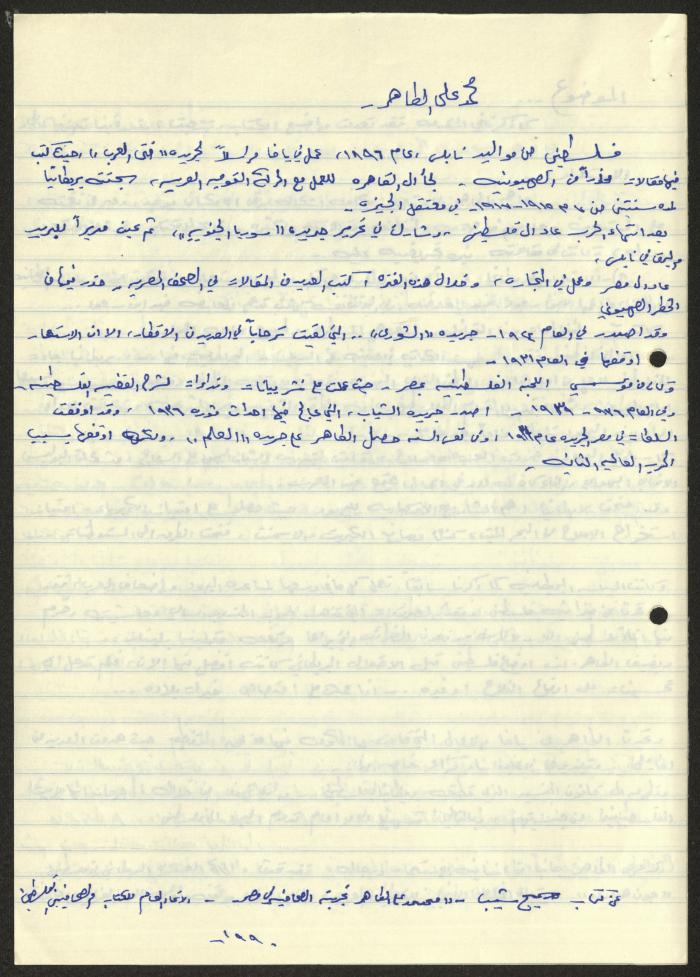 محمد علي الطاهر -
فلسطيني من مواليد نابلس، عام ١٨٩٦، عمل في يافا مراسلاً لجريدة "فتى العرب"، حيث كتب
فيها مقالات من الصهيونية - لجأ إلى القاهرة للعمل مع الحركة القومية العربية، سجنته بريطانيا
لمدة سنتين من ١٩١٥ - ١٩١٧ - في معتقل الجيزة -
بعد انتهاء الحرب عاد إلى فلسطين - وشارك في تحرير جريدة "سوريا الجنوبية"، ثم عين مديراً للبريد
والبرق في نابلس،
عاد إلى مصر وعمل في التجارة، وخلال هذه الفترة كتب العديد من المقالات في الصحف المصرية - حذر فيها من
الخطر الصهيوني
وقد أصدر في العام ١٩٢٤ - جريدة "الشورى" - التي لقيت ترحاباً في العديد من الأقطار، إلا أن الاستعمار
أوقفها في العام ١٩٣١ -
وكان من مؤسسي اللجنة الفلسطينية بمصر - حيث عملت على نشر بيانات ونداءات لشرح القضية الفلسطينية -
وفي العام - ١٩٣٩ - أصدر جريدة الشباب، التي عالج فيها أحداث ثورة ١٩٣٦ - وقد أوقفت
السلطات في مصر الجريدة عام، وفي نفس السنة حصل الطاهر على جريدة "العلم"، ولكنه أوقفها بسبب
الحرب العالمية الثانية -
عن كتاب سميح شبيب - "محمد علي الطاهر تجربته الصحافية في مصر" - الاتحاد العام للكتاب والصحافيين الفلسطينيين
١٩٩٠ -